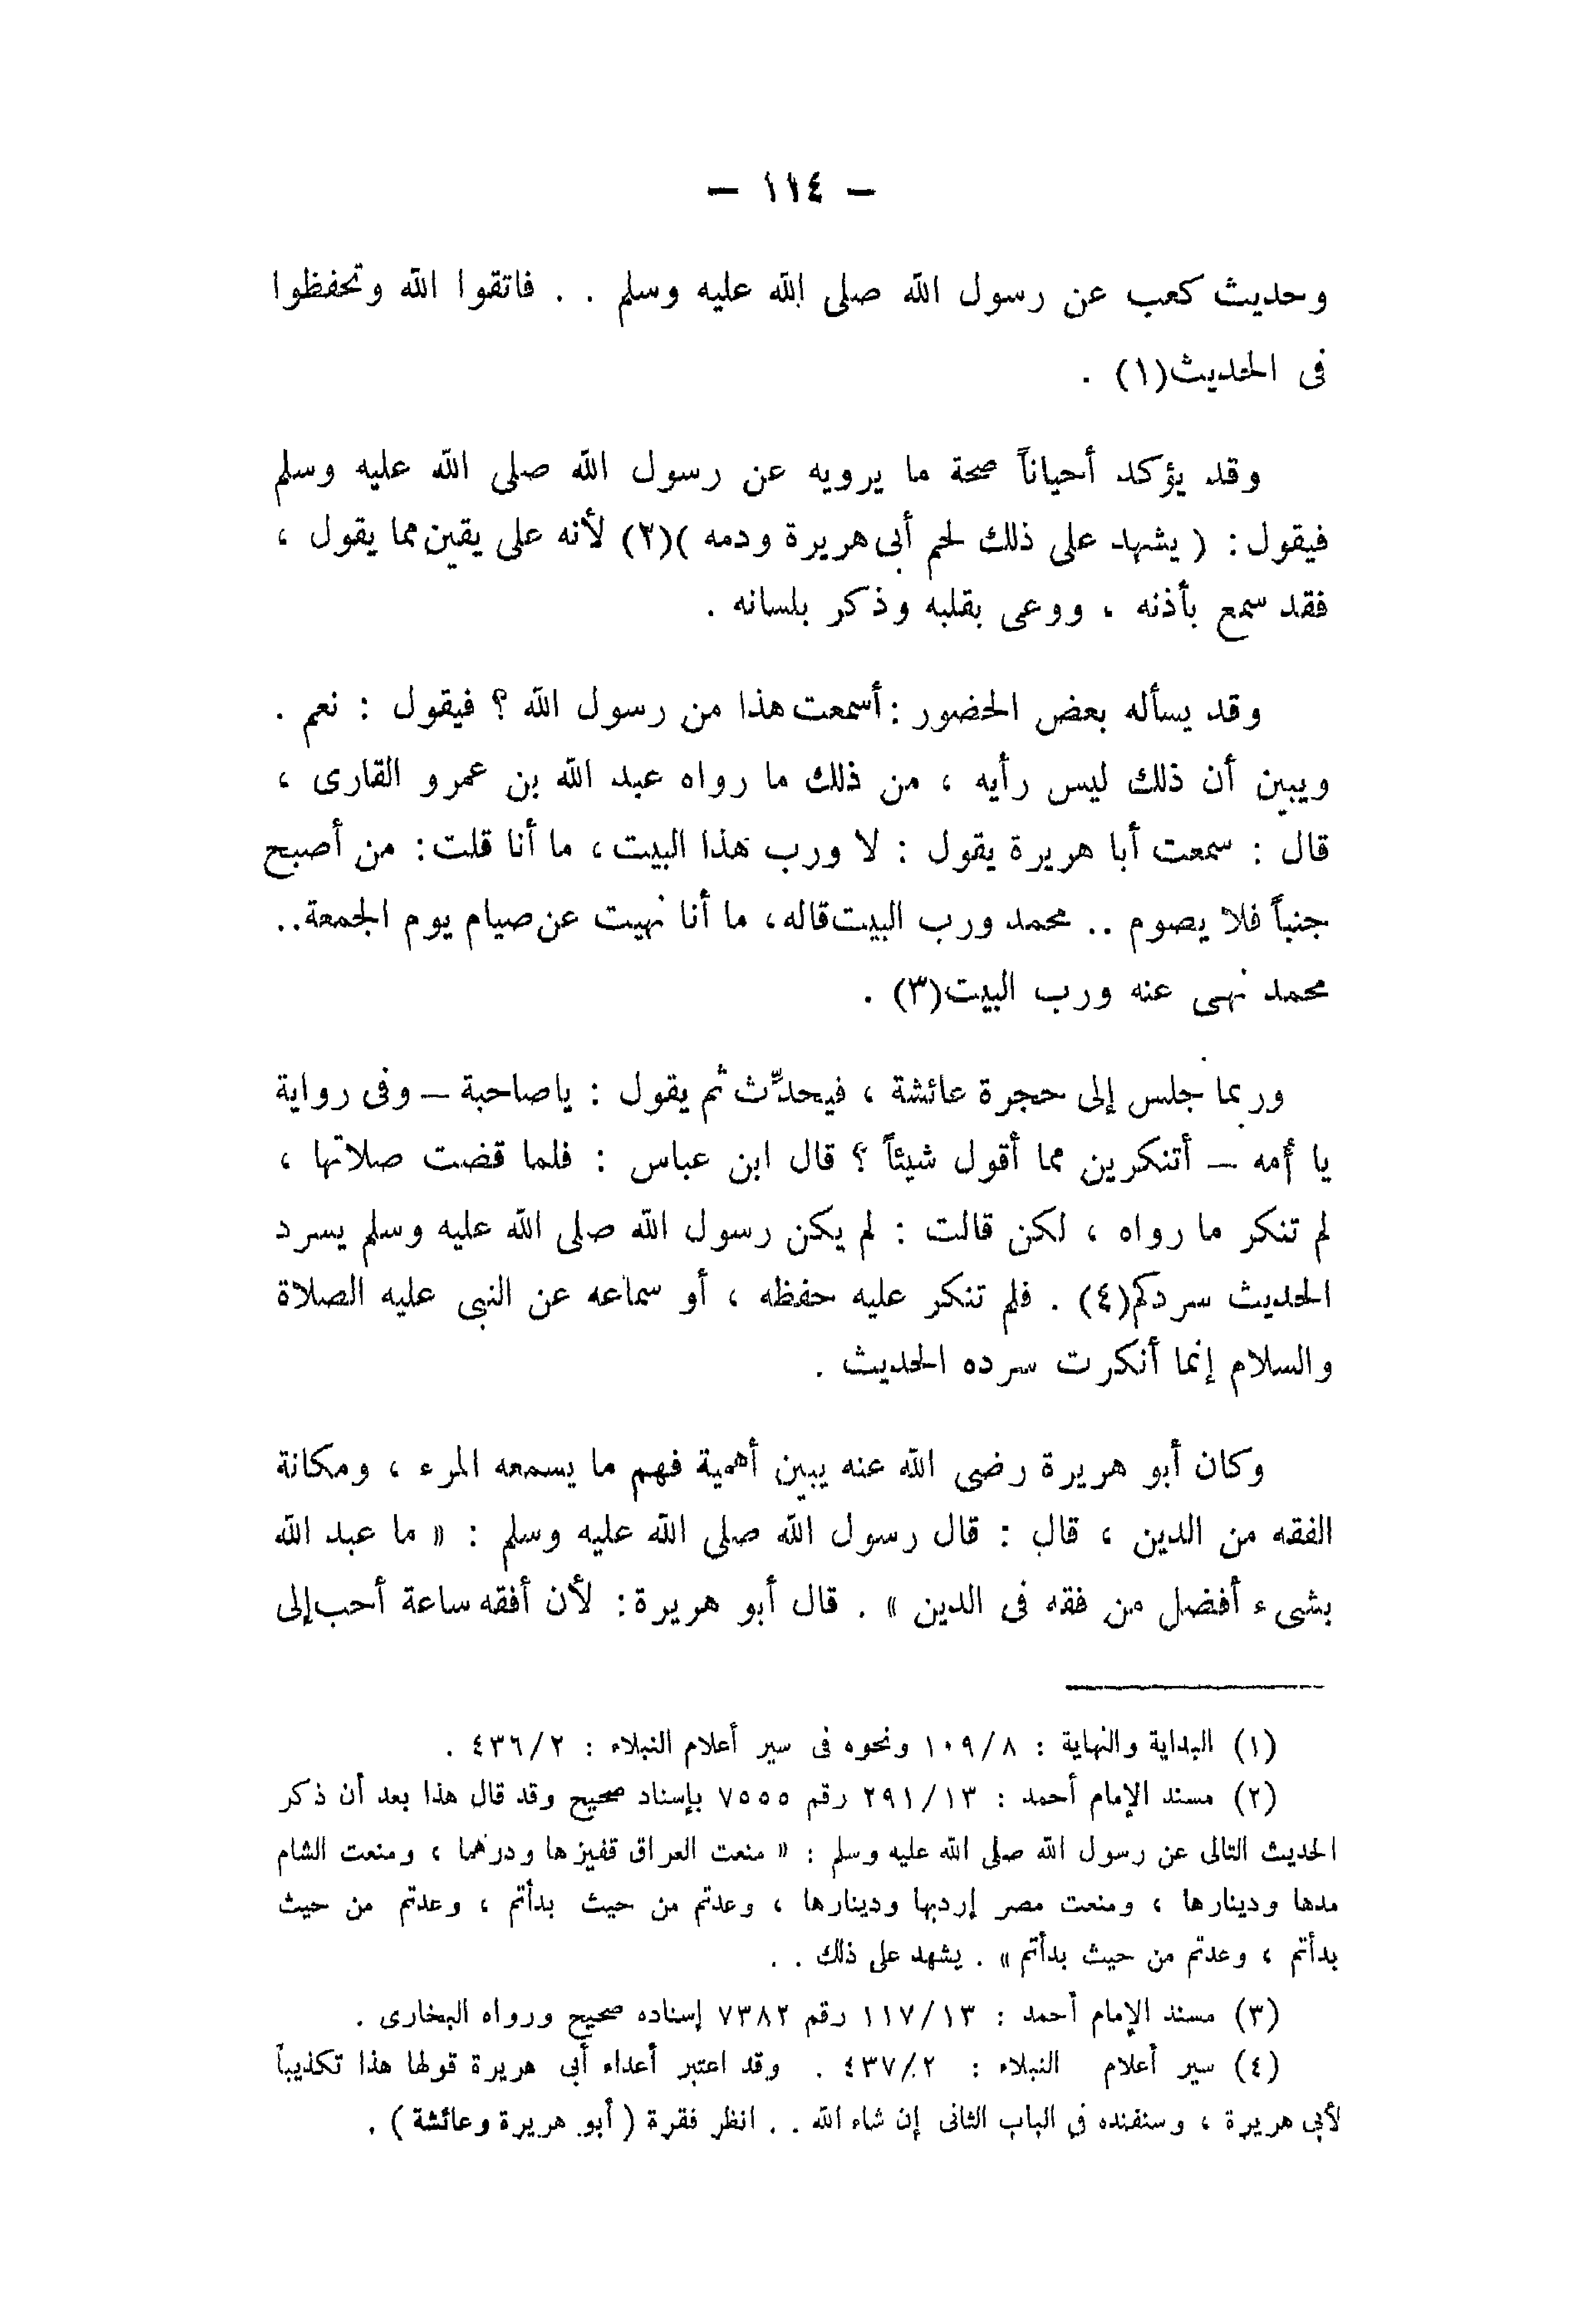 — ١١٤ —
وحديث كعب عن رسول الله صلى الله عليه وسلم . . فاتقوا الله وتحفظوا
فى الحديث(١) .
وقد يؤكد أحياناً صحة ما يرويه عن رسول الله صلى الله عليه وسلم
فيقول : ( يشهد على ذلك لحم أبى هريرة ودمه )(٢) لأنه على يقين مما يقول ،
فقد سمع بأذنه ، ووعى بقلبه وذكر بلسانه .
وقد يسأله بعض الحضور : أسمعت هذا من رسول الله ؟ فيقول : نعم .
ويبين أن ذلك ليس رأيه ، من ذلك ما رواه عبد الله بن عمرو القارى ،
قال : سمعت أبا هريرة يقول : لا ورب هذا البيت ، ما أنا قلت : من أصبح
جنباً فلا يصوم .. محمد ورب البيت قاله ، ما أنا نهيت عن صيام يوم الجمعة ..
محمد نهى عنه ورب البيت(٣) .
وربما جلس إلى حجرة عائشة ، فيحدِّث ثم يقول : يا صاحبة — وفى رواية
يا أمه — أتنكرين مما أقول شيئاً ؟ قال ابن عباس : فلما قضت صلاتها ،
لم تنكر ما رواه ، لكن قالت : لم يكن رسول الله صلى الله عليه وسلم يسرد
الحديث سردكم(٤) . فلم تنكر عليه حفظه ، أو سماعه عن النبى عليه الصلاة
والسلام إنما أنكرت سرده الحديث .
وكان أبو هريرة رضى الله عنه يبين أهمية فهم ما يسمعه المرء ، ومكانة
الفقه من الدين ، قال : قال رسول الله صلى الله عليه وسلم : « ما عبد الله
بشىء أفضل من فقه فى الدين » . قال أبو هريرة : لأن أفقه ساعة أحب إلى
(١) البداية والنهاية : ١٠٩/٨ ونحوه فى سير أعلام النبلاء : ٤٣٦/٢ .
(٢) مسند الإمام أحمد : ٢٩١/١٣ رقم ٧٥٥٥ بإسناد صحيح وقد قال هذا بعد أن ذكر
الحديث التالى عن رسول الله صلى الله عليه وسلم : « منعت العراق قفيزها ودرهما ، ومنعت الشام
مدها ودينارها ، ومنعت مصر إردبها ودينارها ، وعدتم من حيث بدأتم ، وعدتم من حيث
بدأتم ، وعدتم من حيث بدأتم » . يشهد على ذلك . .
(٣) مسند الإمام أحمد : ١١٧/١٣ رقم ٧٣٨٢ إسناده صحيح ورواه البخارى .
(٤) سير أعلام النبلاء : ٤٣٧/٢ . وقد اعتبر أعداء أبى هريرة قولها هذا تكذيباً
لأبى هريرة ، وسنفنده في الباب الثانى إن شاء الله . . انظر فقرة ( أبو هريرة وعائشة ) .